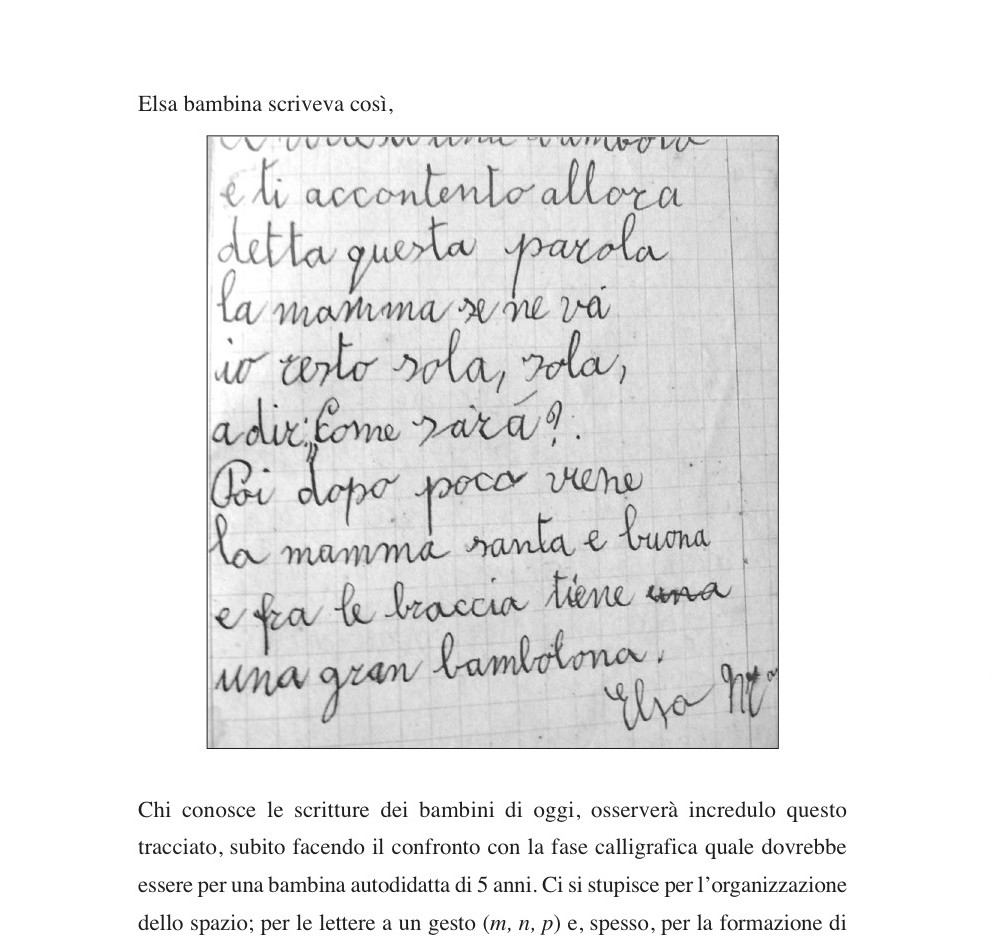 Elsa bambina scriveva così,
e ti accontento allora
detta questa parola
la mamma se ne vá
io resto sola, sola,
a dir: „Come sará?.
Poi dopo poco viene
la mamma santa e buona
e fra le braccia tiene una
una gran bambolona.
Elsa
Chi conosce le scritture dei bambini di oggi, osserverà incredulo questo
tracciato, subito facendo il confronto con la fase calligrafica quale dovrebbe
essere per una bambina autodidatta di 5 anni. Ci si stupisce per l’organizzazione
dello spazio; per le lettere a un gesto (m, n, p) e, spesso, per la formazione di